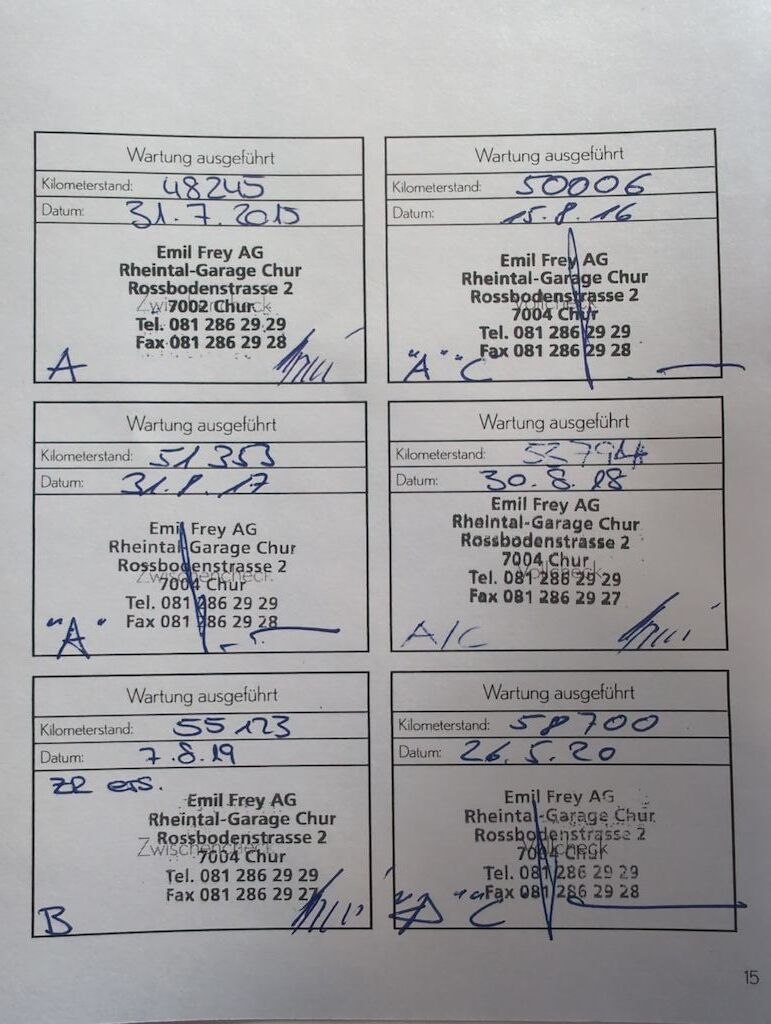 Wartung ausgeführt
Kilometerstand: 48245
Datum: 31.7.2015
Emil Frey AG
Rheintal-Garage Chur
Rossbodenstrasse 2
Zwischencheck
7002 Chur
Tel. 081 286 29 29
Fax 081 286 29 28
A
Wartung ausgeführt
Kilometerstand: 50006
Datum: 15.8.16
Emil Frey AG
Rheintal-Garage Chur
Rossbodenstrasse 2
Vollcheck
7004 Chur
Tel. 081 286 29 29
Fax 081 286 29 28
"A" "C"
Wartung ausgeführt
Kilometerstand: 51353
Datum: 31.8.17
Emil Frey AG
Rheintal-Garage Chur
Rossbodenstrasse 2
Zwischencheck
7004 Chur
Tel. 081 286 29 29
Fax 081 286 29 28
"A"
Wartung ausgeführt
Kilometerstand:
Datum: 30.8.18
Emil Frey AG
Rheintal-Garage Chur
Rossbodenstrasse 2
7004 Chur
Vollcheck
Tel. 081 286 29 29
Fax 081 286 29 27
A/C
Wartung ausgeführt
Kilometerstand: 55123
Datum: 7.8.19
ZR ers.
Emil Frey AG
Rheintal-Garage Chur
Rossbodenstrasse 2
Zwischencheck
7004 Chur
Tel. 081 286 29 29
Fax 081 286 29 27
B
Wartung ausgeführt
Kilometerstand: 58700
Datum: 26.5.20
Emil Frey AG
Rheintal-Garage Chur
Rossbodenstrasse 2
Vollcheck
7004 Chur
Tel. 081 286 29 29
Fax 081 286 29 28
"C
15